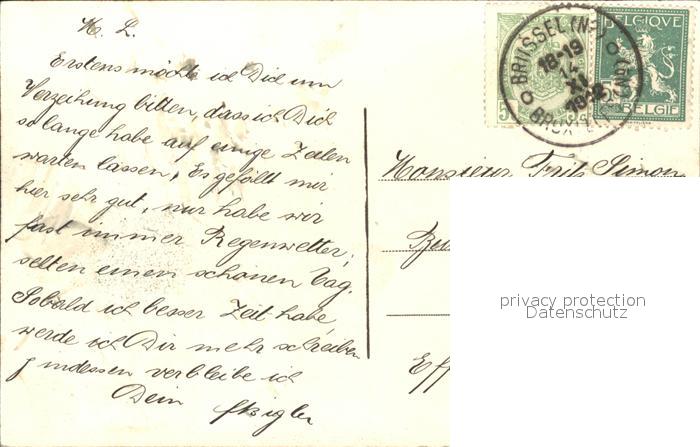 M. L.
Erstens möchte ich Dich um
Verzeihung bitten, dass ich Dich
so lange habe auf einige Zeilen
warten lassen, Es gefällt mir
hier sehr gut, nur habe wir
fast immer Regenwetter;
selten einen schönen Tag.
Sobald ich besser Zeit habe
werde ich Dir mehr schreiben
Indessen verbleibe ich
Dein
BRUSSEL (N-)
18-19
14
XI
BRUX
BELGIQUE
BELGIE
Monsieur Fritz Simon
Eff
privacy protection
Datenschutz